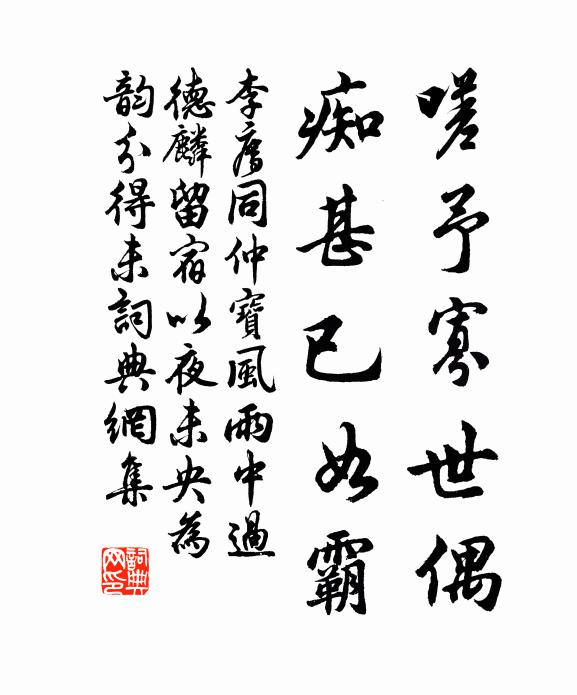 嗟予寡世偶
痴甚已如霸
李廌同仲寶風雨中過
德麟留宿以夜未央為
韵分得未詞典網集
詞典網印